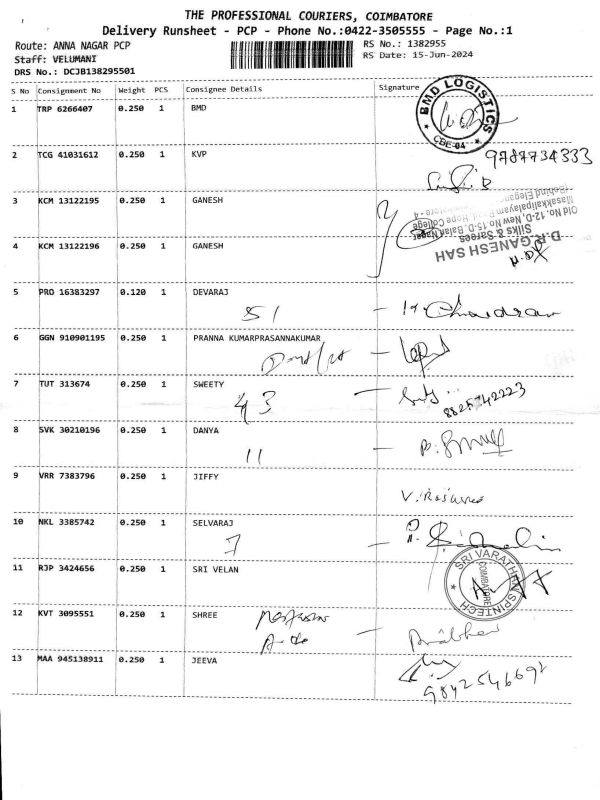 THE PROFESSIONAL COURIERS, COIMBATORE
Delivery Runsheet - PCP - Phone No.:0422-3505555 - Page No.:1
Route: ANNA NAGAR PCP
RS No.: 1382955
Staff: VELUMANI
RS Date: 15-Jun-2024
DRS No.: DCJB138295501
S No Consignment No Weight PCS Consignee Details Signature
1 TRP 6266407 0.250 1 BMD
BMD LOGISTICS
* CBE-04 *
2 TCG 41031612 0.250 1 KVP
9787734333
3 KCM 13122195 0.250 1 GANESH
4 KCM 13122196 0.250 1 GANESH
D.R.GANESH SAH
Silks & Sarees
Old No. 12-D, New No 15-D, Balan Nagar
Masakkalipalayam Road, Hope College
(Behind Elegan
5 PRO 16383297 0.120 1 DEVARAJ
51 -
6 GGN 910901195 0.250 1 PRANNA KUMARPRASANNAKUMAR
7 TUT 313674 0.250 1 SWEETY
43 -
8825742223
8 SVK 30210196 0.250 1 DANYA
11 -
9 VRR 7383796 0.250 1 JIFFY
10 NKL 3385742 0.250 1 SELVARAJ
7 -
11 RJP 3424656 0.250 1 SRI VELAN
SRI VARATHAN SPINTECH
COIMBATORE
12 KVT 3095551 0.250 1 SHREE
Prabhu
13 MAA 945138911 0.250 1 JEEVA
9842546692